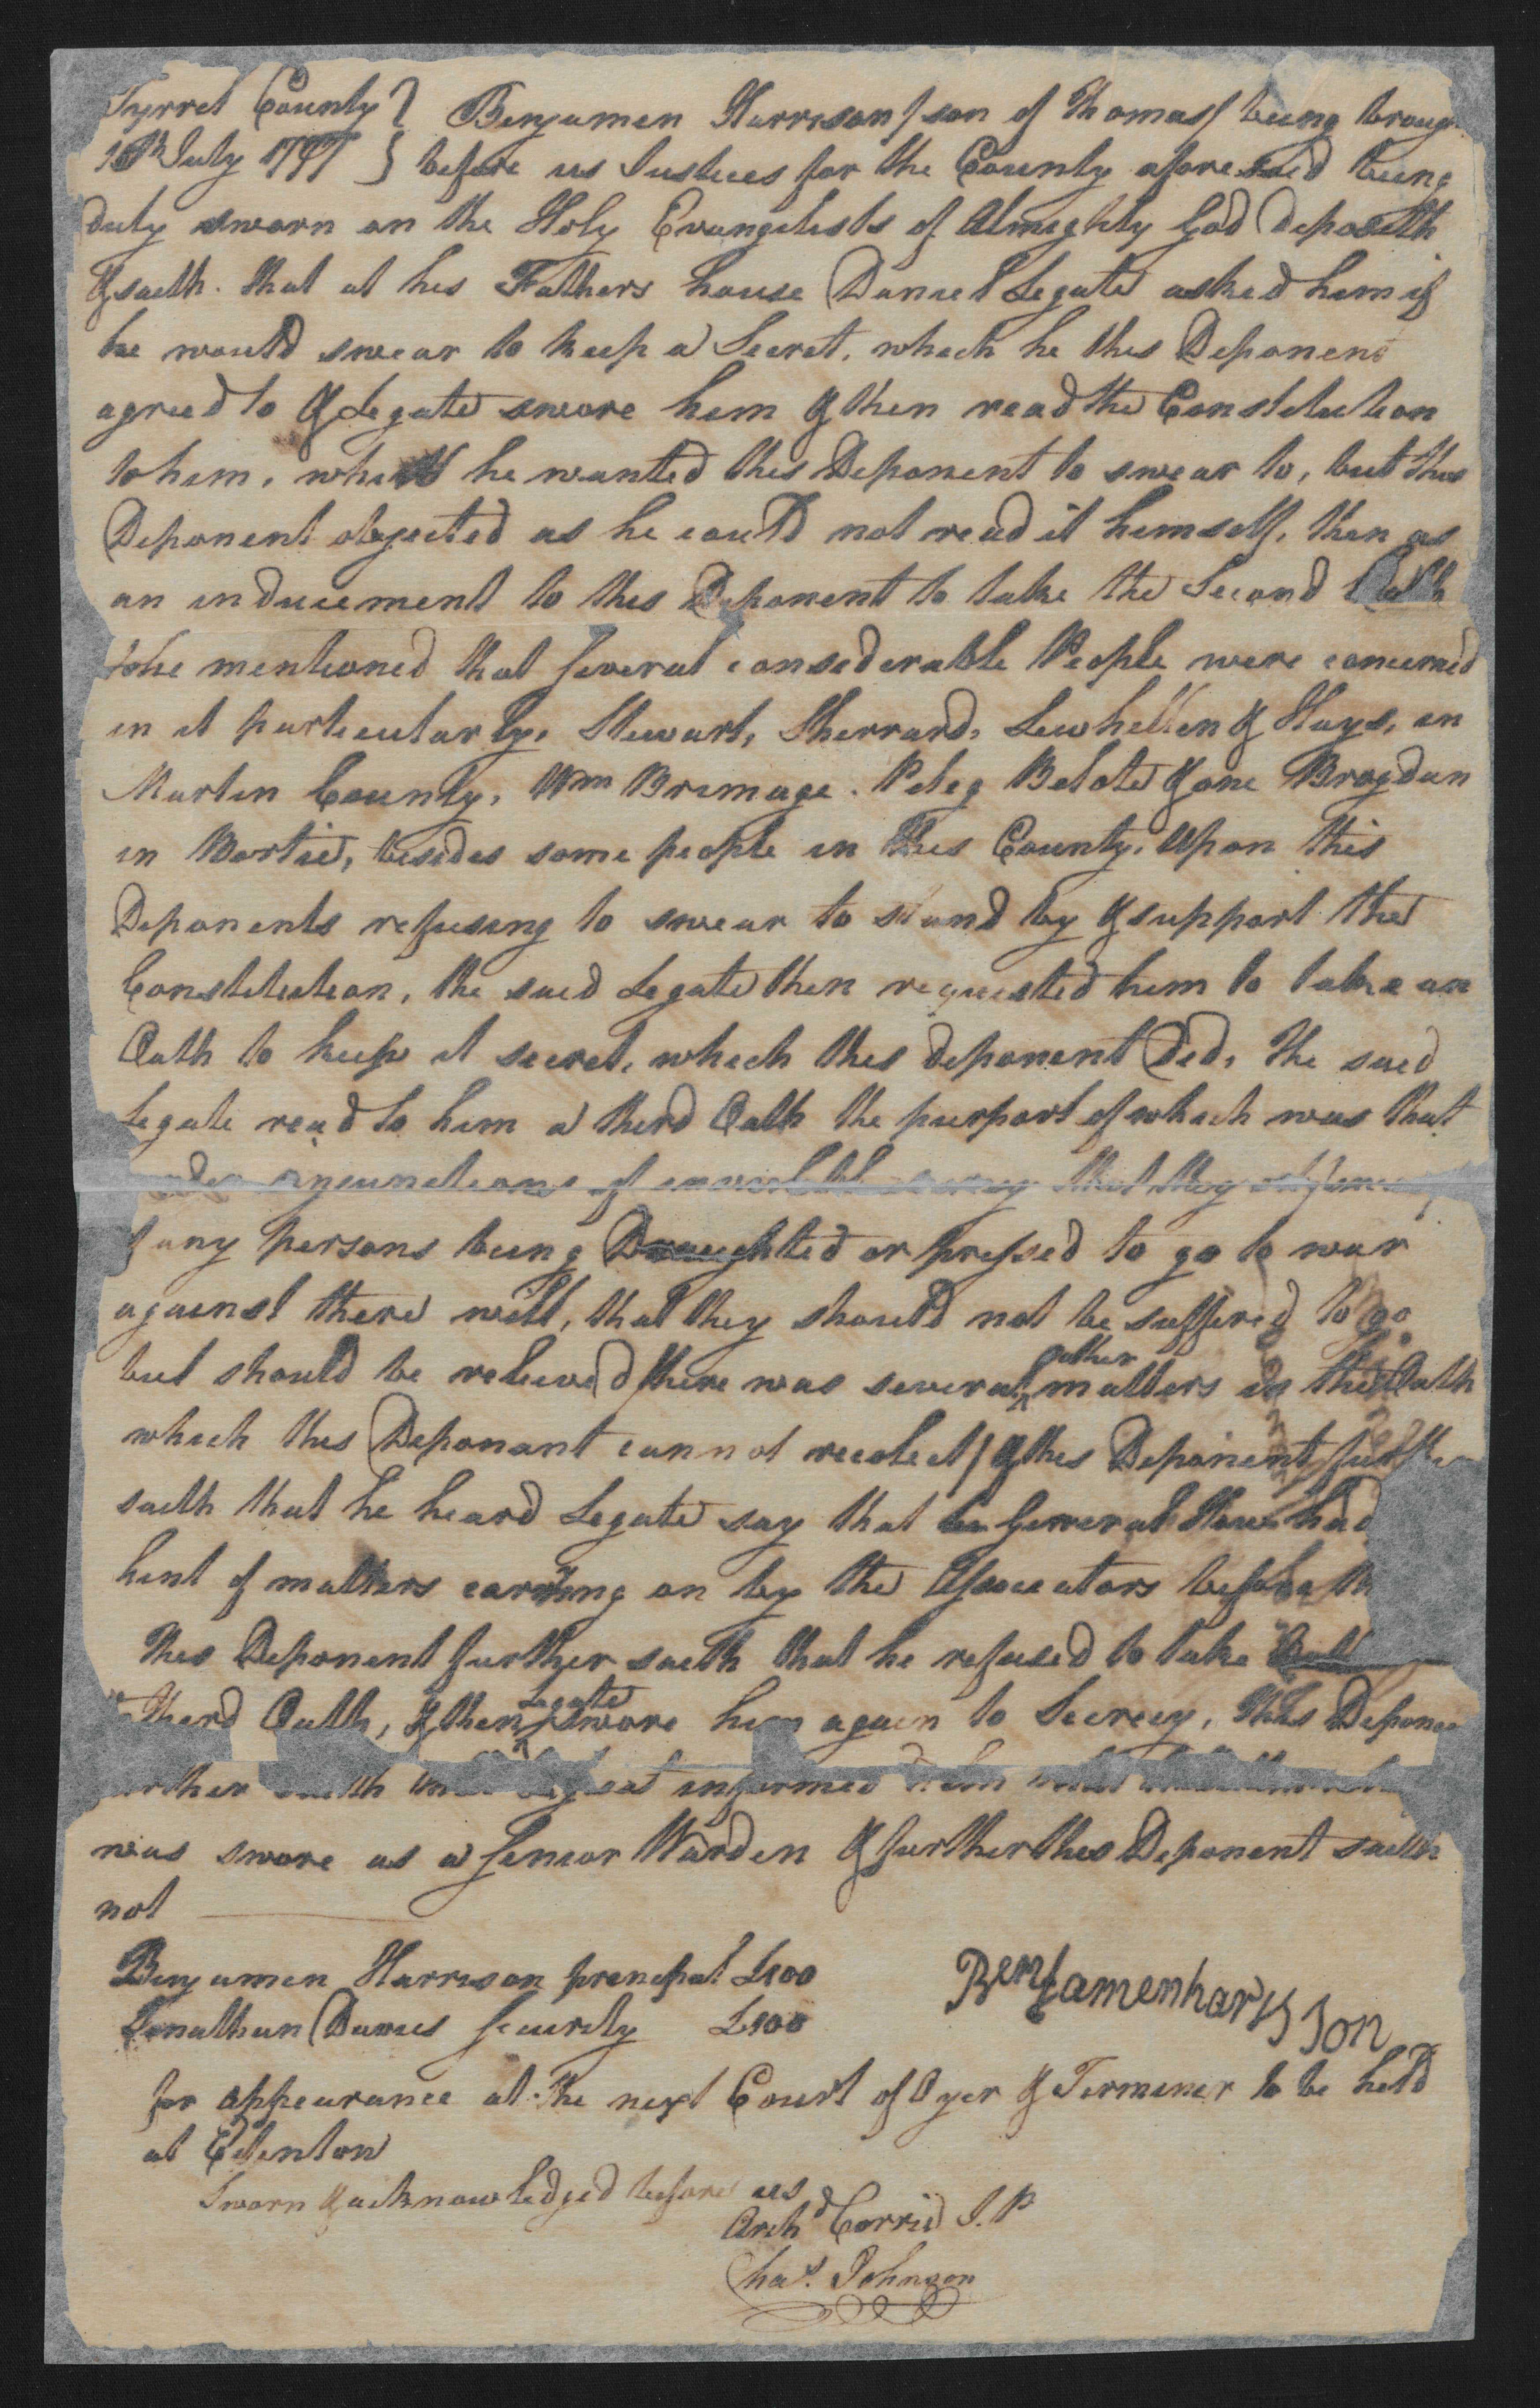 Tyrrel County } Benjamen Harrison / son of Thomas / being broug
16th July 1777 } before us Justices for the County aforesaid being
duly sworn on the Holy Evangelists of Almighty God Deposeth
& saith. that at his Fathers house Daniel Legate asked him if
he would swear to keep a Secret, which he this Deponent
agreed to & Legate swore him & then read the Constitution
to him, which he wanted this Deponent to swear to, but this
Deponent objected as he could not read it himself, then as
an inducement to this Deponent to take the Second Oath
he mentioned that several considerable People were concerned
in it particularly, Stewart, Sherrard, Lewhellen & Hays, in
Martin County, Wm Brimage. Peleg Belote & one Brogdan
in Bertie, besides some people in this County. Upon this
Deponents refusing to swear to stand by & support the
Constitution, the said Legate then requested him to take an
Oath to keep it secret, which this deponent Did, the said
Legate read to him a third Oath the purport of which was that
injunctions of that they
if any persons being Draughted or pressed to go to war
against there will, that they should not be suffered to go
but should be relieved / there was several other matters in this Oath
which this Deponant cannot recolect / & this Deponent further
saith that he heard Legate say that General How had
hint of matters carrying on by the Associators before th
This Deponent further saith that he refused to take
third Oath, & then Legate swore him again to Secrecy, this Depone
further saith that Legate informed him that
was swore as a Senior Warden & further this Deponent saith
not
Benjamen Harrison principal £100
Benjamenharison
Jonathan Davis Security £100
for appearance at the next Court of Oyer & Terminer to be held
at Edenton
Sworn & acknowledged before us
Archd Corrie J.P
Chas. Johnson